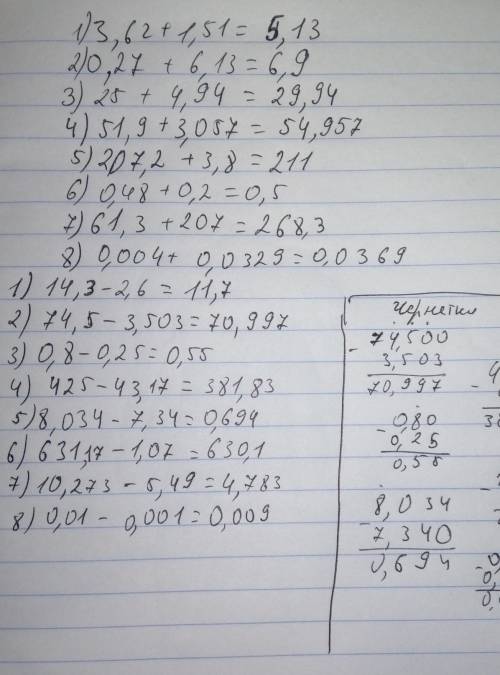 1) 3,62 + 1,51 = 5,13
2) 0,27 + 6,13 = 6,9
3) 25 + 4,94 = 29,94
4) 51,9 + 3,057 = 54,957
5) 207,2 + 3,8 = 211
6) 0,48 + 0,2 = 0,5
7) 61,3 + 207 = 268,3
8) 0,004 + 0,0329 = 0,0369
1) 14,3 - 2,6 = 11,7
2) 74,5 - 3,503 = 70,997
3) 0,8 - 0,25 = 0,55
4) 425 - 43,17 = 381,83
5) 8,034 - 7,34 = 0,694
6) 631,17 - 1,07 = 630,1
7) 10,273 - 5,49 = 4,783
8) 0,01 - 0,001 = 0,009
Чернетка
74,500
- 3,503
70,997
- 0,80
0,25
0,55
- 8,034
7,340
0,694